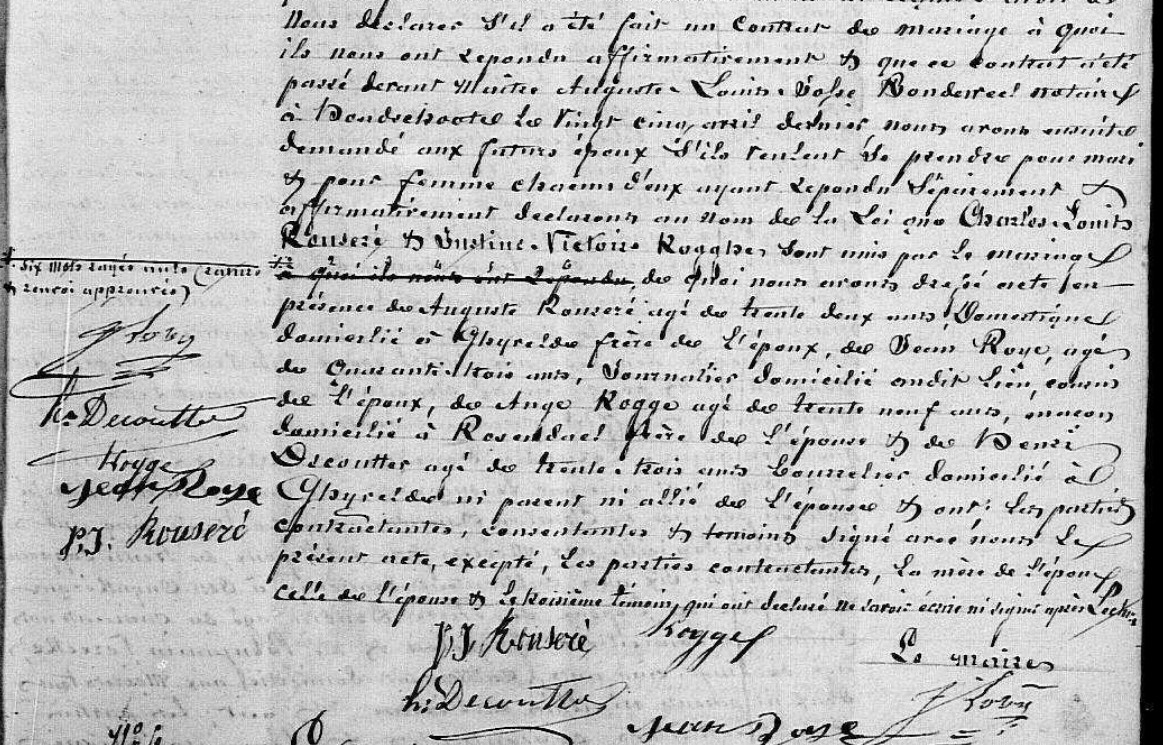 nous declarer s'il a été fait un Contrat de mariage à quoi
ils nous ont repondu affirmativement & que ce contrat a été
passé devant Maitre Auguste Louis notaire
à Hondschoote le vingt cinq avril dernier, nous avons ensuite
demandé aux futurs époux s'ils veulent se prendre pour mari
& pour femme chacun d'eux ayant repondu séparement &
affirmativement declarons au nom de la Loi que Charles Louis
Rouseré & Justine Victoire Rogghe, sont unis par le mariage
à quoi ils nous ont repondu, de quoi nous avons dressé acte en
présence de Auguste Rouseré agé de trente deux ans, Domestique
domicilié à Ghyvelde frère de l'époux, de Jean Roye, agé
de Quarante trois ans, Journalier domicilié audit lieu, cousin
de l'époux, de Ange Rogge agé de trente neuf ans, maçon
domicilié à Rosendael frère de l'épouse & de Henri
Decoutter agé de trente trois ans bourrelier domicilié à
Ghyvelde ni parent ni allié de l'épouse & ont: les parties
contractantes, consentantes & temoins signé avec nous le
présent acte, excepté, les parties contractantes, la mère de l'époux
celle de l'épouse & le troisième témoin, qui ont declaré ne savoir écrire ni signer après Lecture
six mots rayés nuls
& renvoi approuvés
h. Decoutter
Rogge
Jean Roye
P.J. Rouseré
P.J. Rouseré Rogge
Le maire
h. Decoutter
Jean Roye
N° 6